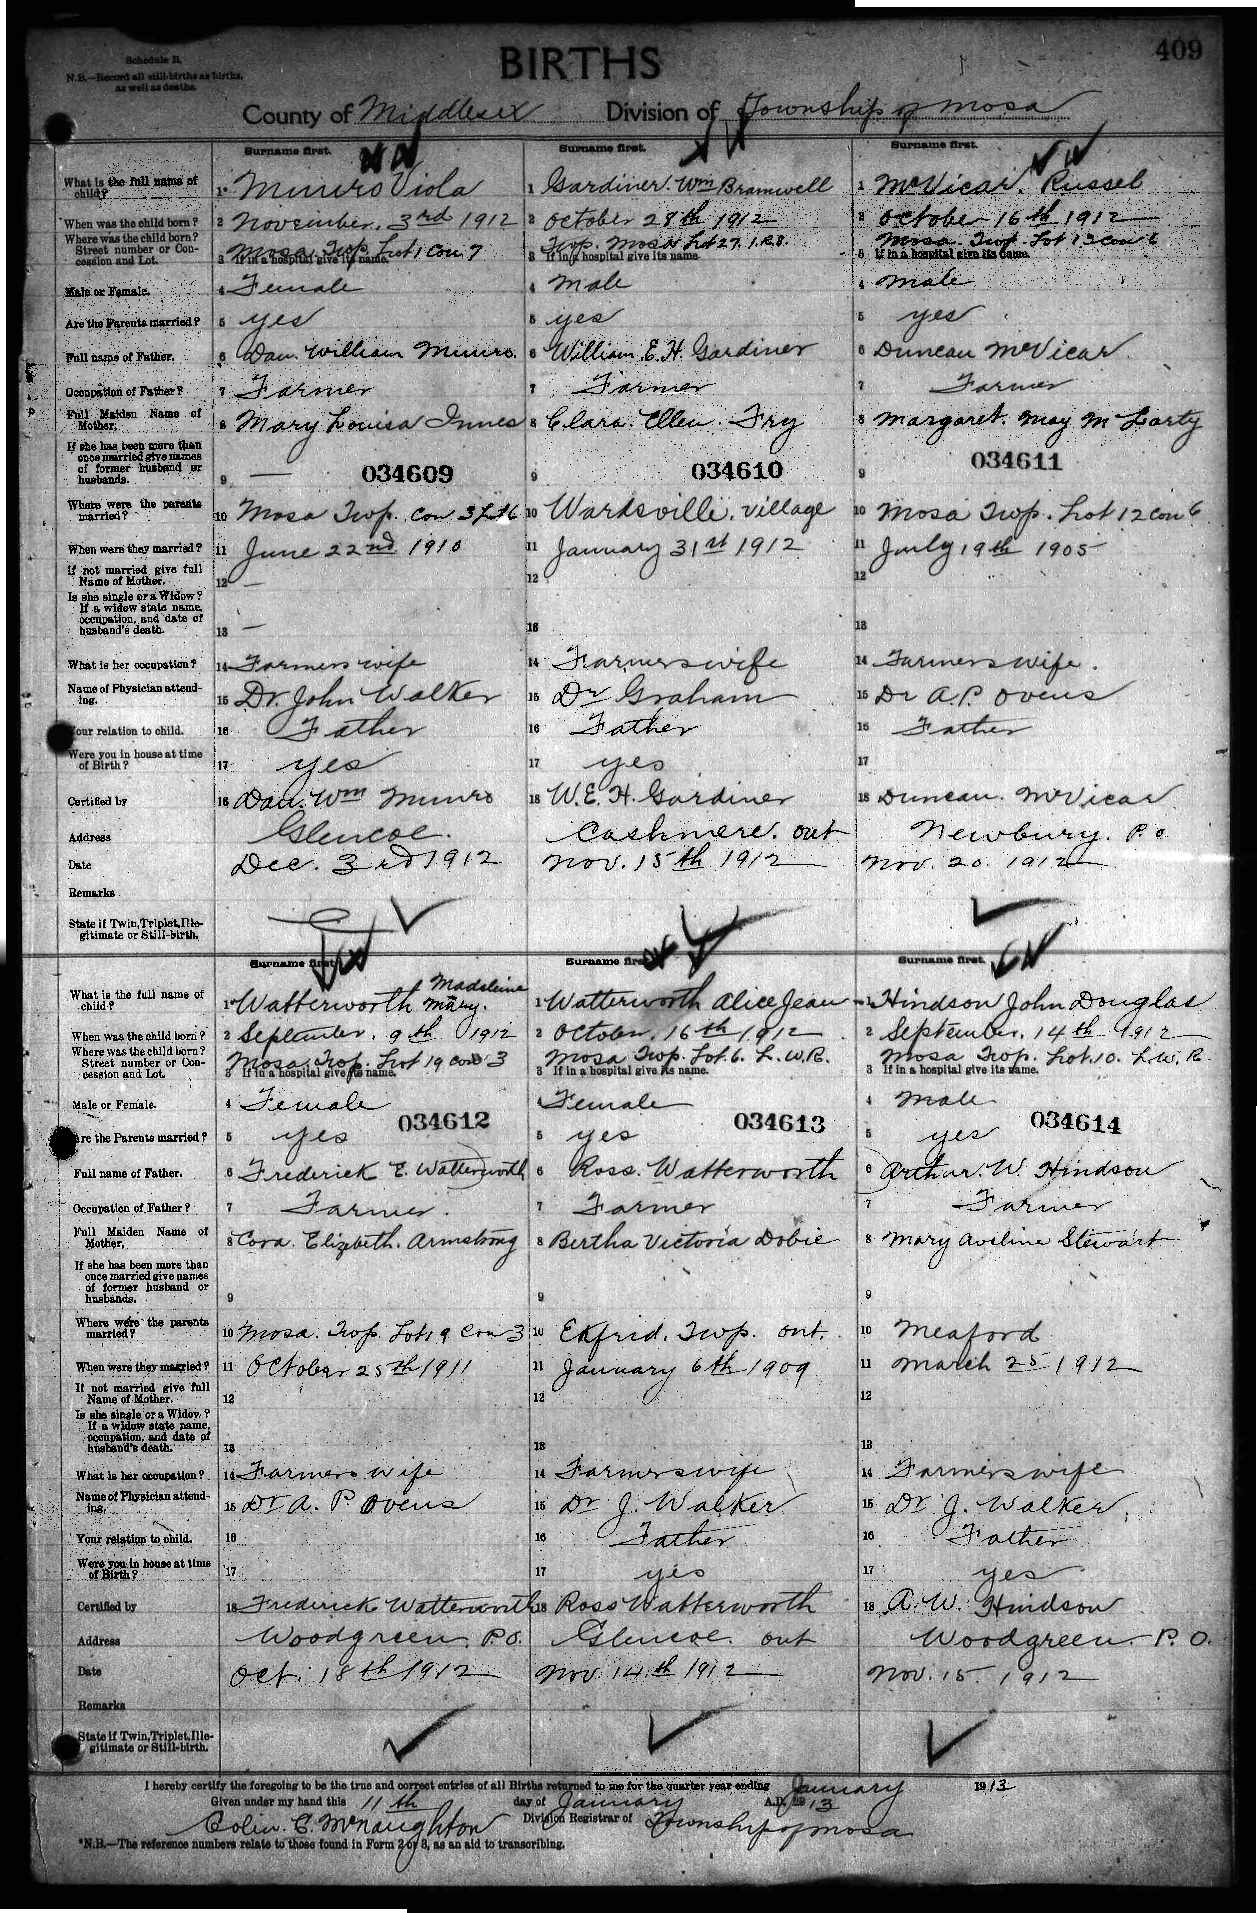 409
Schedule B.
N.B.—Record all still-births as births, as well as deaths.
BIRTHS
County of Middlesex Division of Township of Mosa
Surname first. Surname first. Surname first.
What is the full name of child? 1 Munro Viola 1 Gardiner. Wm Bramwell 1 McVicar. Russel
When was the child born? 2 November. 3rd 1912 2 October 28th 1912 2 October 16th 1912
Where was the child born? Street number or Concession and Lot. 3 Mosa. Twp. Lot 1 Con 7 3 Twp. Mosa Lot 27. 1. R.8. 3 Mosa. Twp. Lot 13 Con 6
If in a hospital give its name. If in a hospital give its name. If in a hospital give its name.
Male or Female. 4 Female 4 Male 4 Male
Are the Parents married? 5 yes 5 yes 5 yes
Full name of Father. 6 Dan. William Munro. 6 William E. H. Gardiner 6 Duncan McVicar
Occupation of Father? 7 Farmer 7 Farmer 7 Farmer
Full Maiden Name of Mother. 8 Mary Louisa Innes 8 Clara. Ellen. Fry 8 Margaret. May McLarty
If she has been more than once married give names of former husband or husbands. 9 — 034609 9 034610 9 034611
Where were the parents married? 10 Mosa Twp. Con 3 Lt 6 10 Wardsville. Village 10 Mosa Twp. Lot 12 Con 6
When were they married? 11 June 22nd 1910 11 January 31st 1912 11 July 19th 1905
If not married give full Name of Mother. 12 — 12 12
Is she single or a Widow? If a widow state name, occupation, and date of husband's death. 13 — 13 13
What is her occupation? 14 Farmers wife 14 Farmers wife 14 Farmers wife.
Name of Physician attending. 15 Dr. John Walker 15 Dr Graham 15 Dr A. P. Ovens
Your relation to child. 16 Father 16 Father 16 Father
Were you in house at time of Birth? 17 yes 17 yes 17
Certified by 18 Dan. Wm Munro 18 W. E. H. Gardiner 18 Duncan. McVicar
Address Glencoe. Cashmere. Ont Newbury. P.O.
Date Dec. 3rd 1912 Nov. 15th 1912 Nov. 20. 1912
Remarks
State if Twin, Triplet, Illegitimate or Still-birth.
Surname first. Surname first. Surname first.
What is the full name of child? 1 Watterworth Mary. Madeleine 1 Watterworth Alice Jean 1 Hindson John Douglas
When was the child born? 2 September. 9th 1912 2 October. 16th 1912 2 September. 14th 1912
Where was the child born? Street number or Concession and Lot. 3 Mosa. Twp. Lot 19 Con 3 3 Mosa Twp. Lot. 6. L. W. R. 3 Mosa Twp. Lot. 10. L. W. R.
If in a hospital give its name. If in a hospital give its name. If in a hospital give its name.
Male or Female. 4 Female 034612 4 Female 034613 4 Male 034614
Are the Parents married? 5 yes 5 yes 5 yes
Full name of Father. 6 Frederick E. Watterworth 6 Ross. Watterworth 6 Arthur. W. Hindson
Occupation of Father? 7 Farmer. 7 Farmer 7 Farmer
Full Maiden Name of Mother. 8 Cora. Elizabeth. Armstrong 8 Bertha Victoria Dobie 8 Mary Aveline Stewart
If she has been more than once married give names of former husband or husbands. 9 9 9
Where were the parents married? 10 Mosa. Twp. Lot 19 Con 3 10 Ekfrid. Twp. Ont. 10 Meaford
When were they married? 11 October 25th 1911 11 January 6th 1909 11 March 25 1912
If not married give full Name of Mother. 12 12 12
Is she single or a Widow? If a widow state name, occupation, and date of husband's death. 13 13 13
What is her occupation? 14 Farmers wife 14 Farmers wife 14 Farmers wife
Name of Physician attending. 15 Dr A. P. Ovens 15 Dr J. Walker 15 Dr J. Walker
Your relation to child. 16 16 Father 16 Father
Were you in house at time of Birth? 17 17 yes 17 yes
Certified by 18 Frederick Watterworth 18 Ross Watterworth 18 A. W. Hindson
Address Woodgreen. P.O. Glencoe. Ont Woodgreen. P.O.
Date Oct. 18th 1912 Nov. 14th 1912 Nov. 15. 1912
Remarks
State if Twin, Triplet, Illegitimate or Still-birth.
I hereby certify the foregoing to be the true and correct entries of all Births returned to me for the quarter year ending January 1913
Given under my hand this 11th day of January A.D. 1913
Colin. C. McNaughton Division Registrar of Township of Mosa
*N.B.—The reference numbers relate to those found in Form 2 of 3, as an aid to transcribing.